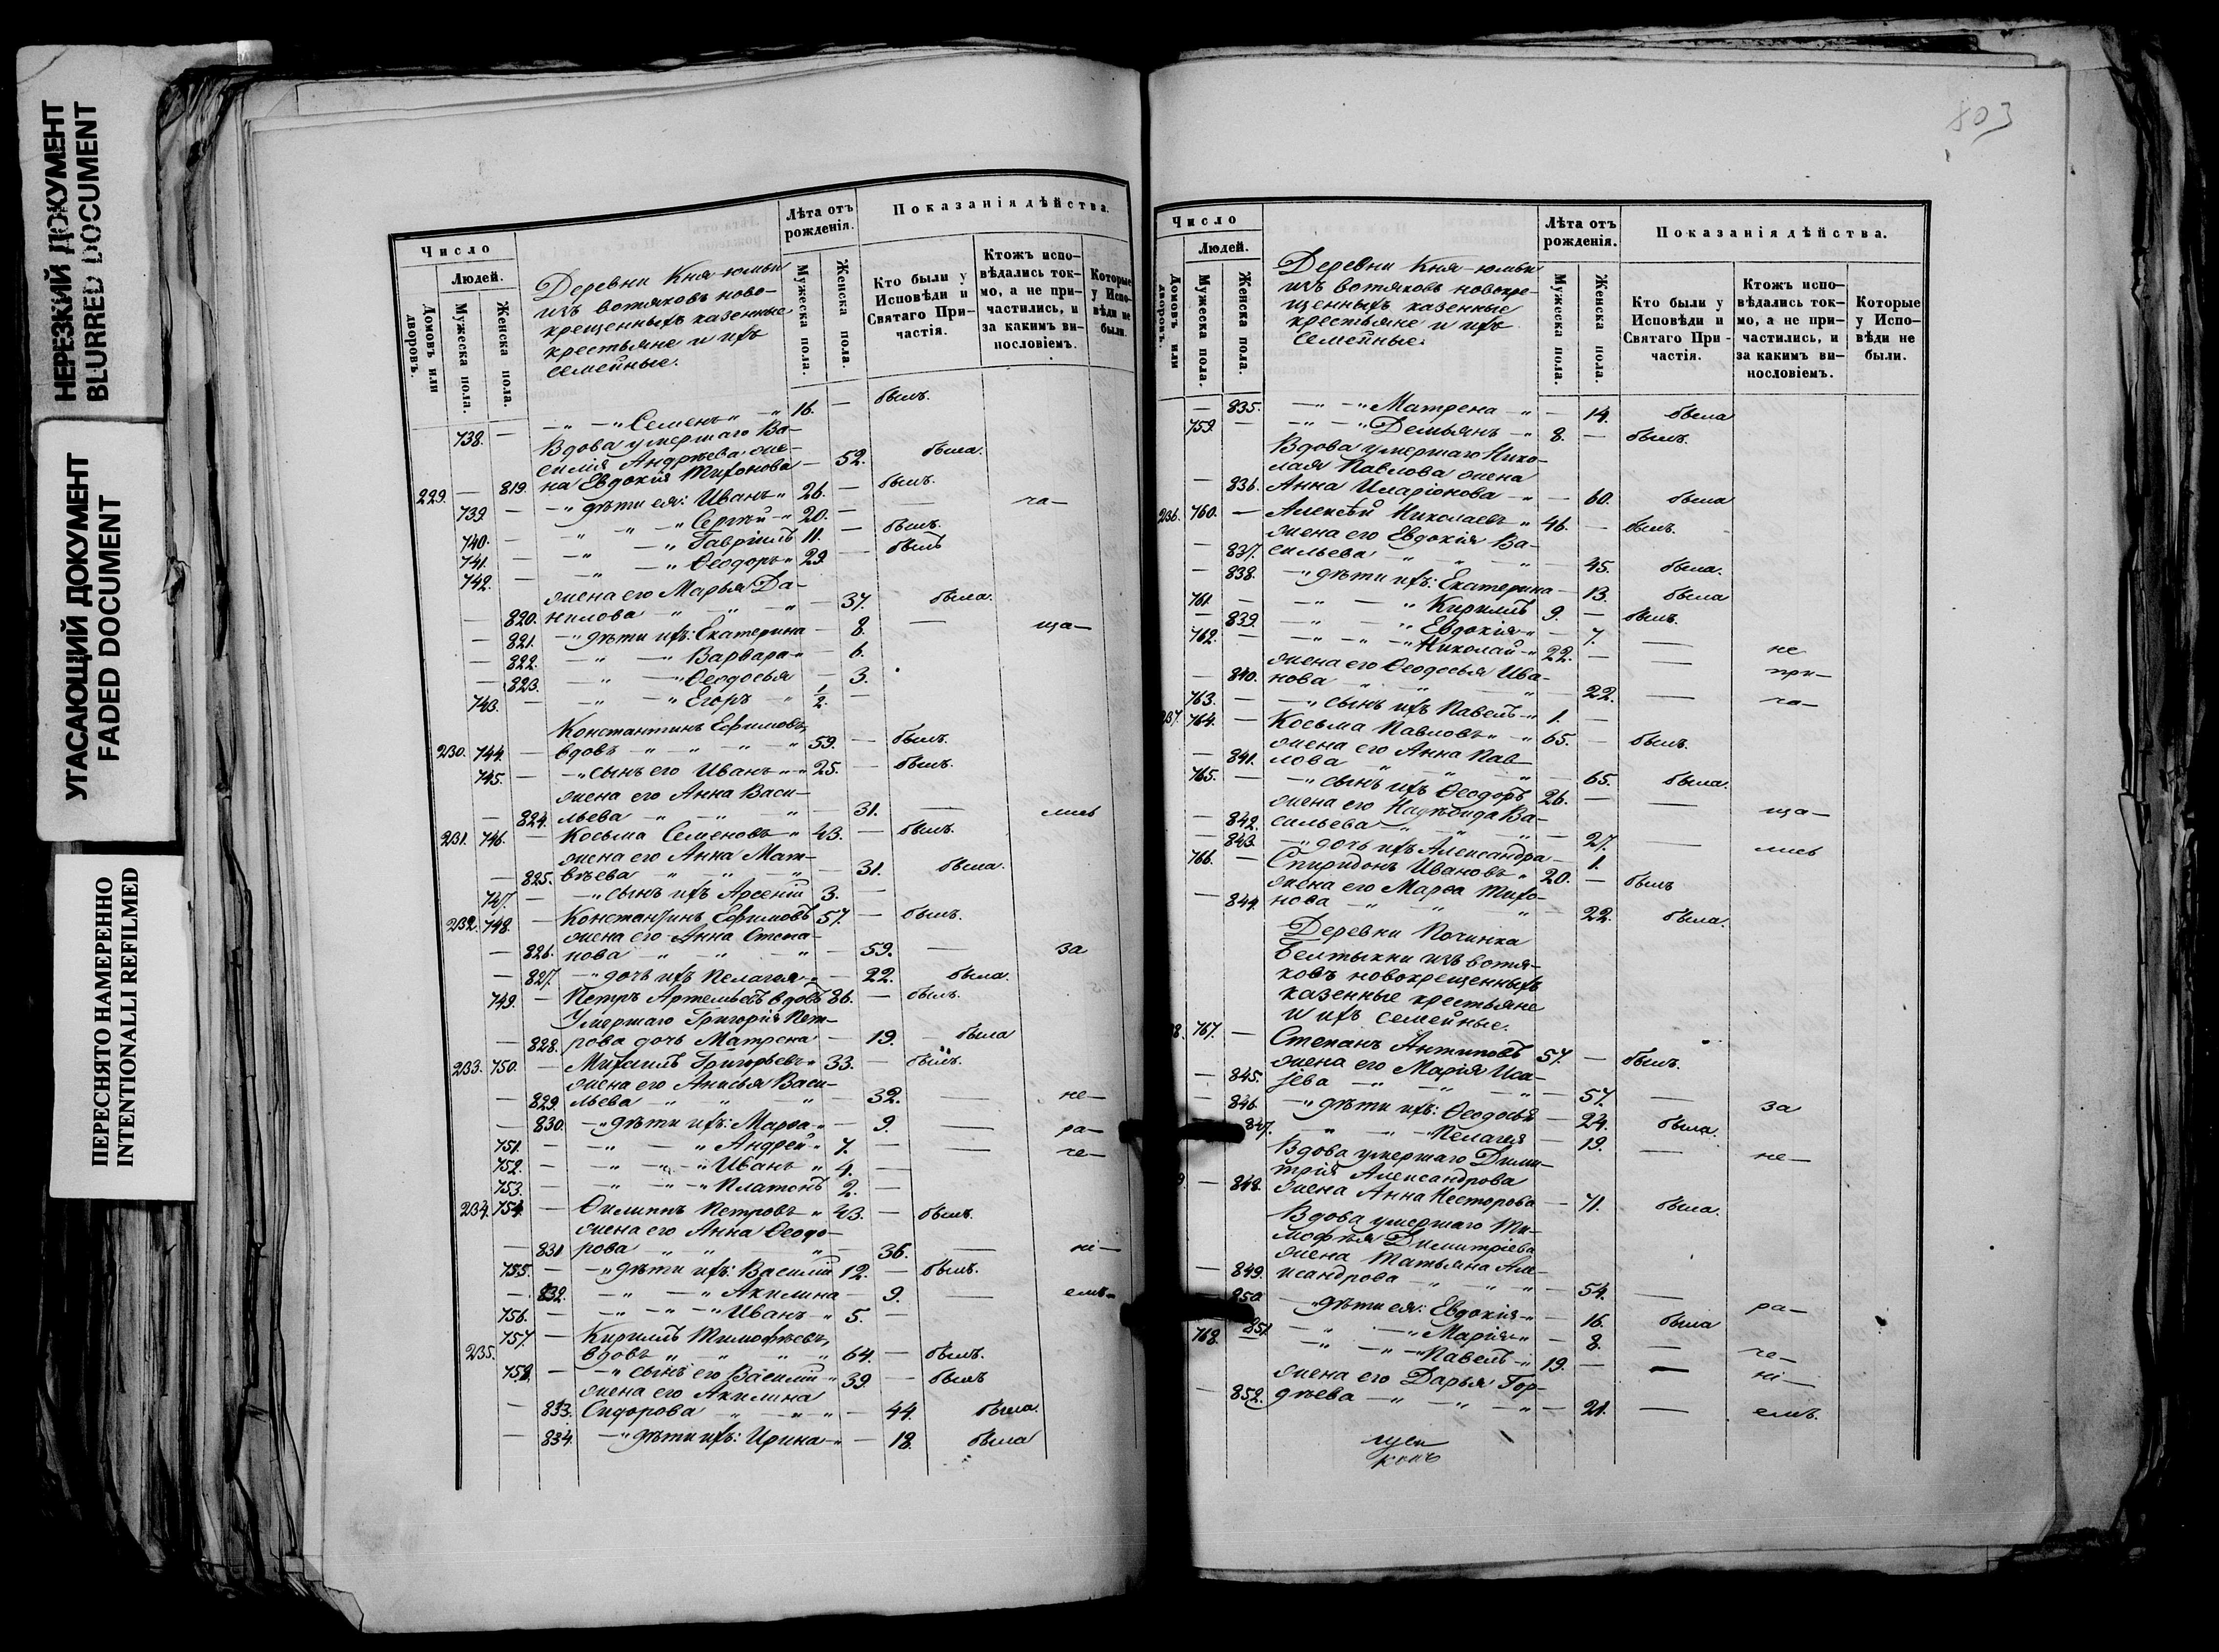 НЕРЕЗКИЙ ДОКУМЕНТ
BLURRED DOCUMENT
УГАСАЮЩИЙ ДОКУМЕНТ
FADED DOCUMENT
ПЕРЕСНЯТО НАМЕРЕННО
INTENTIONALLI REFILMED
Число
Людей.
Домовъ или дворовъ.
Мужеска пола.
Женска пола.
Деревни Кня-юмьи
изъ вотяковъ ново-
крещенныхъ казенные
крестьяне и ихъ
семейные.
Лѣта отъ рожденія.
Мужеска пола.
Женска пола.
Показанія дѣйства.
Кто были у Исповѣди и Святаго Причастія.
Ктожъ исповѣдались токмо, а не причастились, и за какимъ винословіемъ.
Которые у Исповѣди не были.
738. — „ Семенъ „ 16. — былъ.
Вдова умершаго Ва-
силія Андрѣева же-
229. — 819. на Евдокія Тихонова — 52. была.
739 — „ дѣти ея: Иванъ „ 26. — былъ.
740. — „ „ Сергѣй „ 20. — — ча—
741. — „ „ Гавріилъ 11. — былъ.
742. — „ „ Ѳеодоръ „ 29. — былъ
жена его Марья Да-
— 820. нилова „ „ — 37. была.
— 821. „ дѣти ихъ: Екатерина — 8. — ща—
— 822. „ „ Варвара „ — 6.
— 823. „ „ Ѳеодосья — 3.
743. — „ „ Егоръ „ 1/2. —
Константинъ Ефимовъ,
230. 744. — вдовъ „ „ „ „ 59. — былъ.
745. — „ сынъ его Иванъ „ „ 25. — былъ.
жена его Анна Васи-
— 824. льева „ „ „ — 31. — лись
231. 746. — Косьма Семеновъ „ 43. — былъ.
жена его Анна Мат-
— 825. вѣева „ „ „ — 31. была.
747. — „ сынъ ихъ Арсеній 3. —
232. 748. — Константинъ Ефимовъ 57. — былъ.
жена его Анна Степа-
— 826. нова „ „ „ — 59. — за
— 827. „ дочь ихъ Пелагея „ — 22. была.
749. — Петръ Артемьевъ вдовъ 86. — былъ.
Умершаго Григорія Пет-
— 828. рова дочь Матрена — 19. — была
233. 750. — Михаилъ Григорьевъ „ 33. — былъ.
жена его Анисья Васи-
— 829. льева „ „ „ — 32. — не—
— 830. „ дѣти ихъ: Марѳа „ — 9. — ра—
751. — „ „ Андрей „ 7. — — че—
752. — „ „ Иванъ „ 4. —
753. — „ „ Платонъ 2. —
234. 754. — Филиппъ Петровъ „ 43. — былъ.
жена его Анна Ѳеодо-
— 831 рова „ „ „ — 36. — ні—
755. — „ дѣти ихъ: Василій 12. — былъ.
— 832. „ „ Акилина — 9. — емъ.
756. — „ „ Иванъ „ 5. —
757. — Кириллъ Тимофѣевъ,
235. вдовъ „ „ „ „ 64. — былъ.
758. — „ сынъ его Василій „ 39. — былъ
жена его Акилина
— 833. Сидорова „ „ „ — 44. была.
— 834. „ дѣти ихъ: Ирина „ — 18. была
803
Число
Людей.
Домовъ или дворовъ.
Мужеска пола.
Женска пола.
Деревни Кня-юмьи
изъ вотяковъ новокре-
щенныхъ казенные
крестьяне и ихъ
семейные.
Лѣта отъ рожденія.
Мужеска пола.
Женска пола.
Показанія дѣйства.
Кто были у Исповѣди и Святаго Причастія.
Ктожъ исповѣдались токмо, а не причастились, и за какимъ винословіемъ.
Которые у Исповѣди не были.
— 835. „ „ Матрена „ — 14. была
759. — „ „ Демьянъ „ 8. — былъ.
Вдова умершаго Нико-
лая Павлова жена
— 836. Анна Иларіонова „ — 60. была
236. 760. — Алексѣй Николаевъ „ 46. — былъ.
жена его Евдокія Ва-
— 837. сильева „ „ „ — 45. была.
— 838. „ дѣти ихъ: Екатерина — 13. была
761. — „ „ Кириллъ 9. — былъ.
— 839. „ „ Евдокія „ — 7. — не
762. — „ „ Николай „ 22. — — при—
жена его Ѳеодосья Ива-
— 840. нова „ „ „ — 22. — ча—
763. — „ сынъ ихъ Павелъ „ 1. —
237. 764. — Косьма Павловъ „ „ 65. — былъ.
жена его Анна Пав-
— 841. лова „ „ „ — 65. была.
765. — „ сынъ ихъ Ѳеодоръ 26. — — ща—
жена его Надѣжда Ва-
— 842. сильева „ „ „ — 27. — лись
— 843 „ дочь ихъ Александра — 1.
766. — Спиридонъ Ивановъ „ 20. — былъ
жена его Марѳа Тихо-
— 844. нова „ „ „ — 22. была.
Деревни Починка
Бектыжни изъ вотя-
ковъ новокрещенныхъ
казенные крестьяне
и ихъ семейные.
8. 767. — Степанъ Антиповъ 57. — былъ.
жена его Марія Иса-
— 845. — „ „ „ — 57. — за
— 846. „ дѣти ихъ: Ѳеодосья — 24. была.
847. „ „ Пелагея — 19. — не—
Вдова умершаго Дими-
трія Александрова
9. — 848. жена Анна Несторова — 71. была.
Вдова умершаго Ти-
мофѣя Димитріева
жена Татьяна Але-
— 849. ксандрова „ „ „ — 54. — ра—
850. „ дѣти ея: Евдокія „ — 16. была
851. „ „ Марія „ — 8. — че—
768. — „ „ Павелъ „ 19. — — ні—
жена его Дарья Гор-
— 852. дѣева „ „ „ — 21. — емъ.